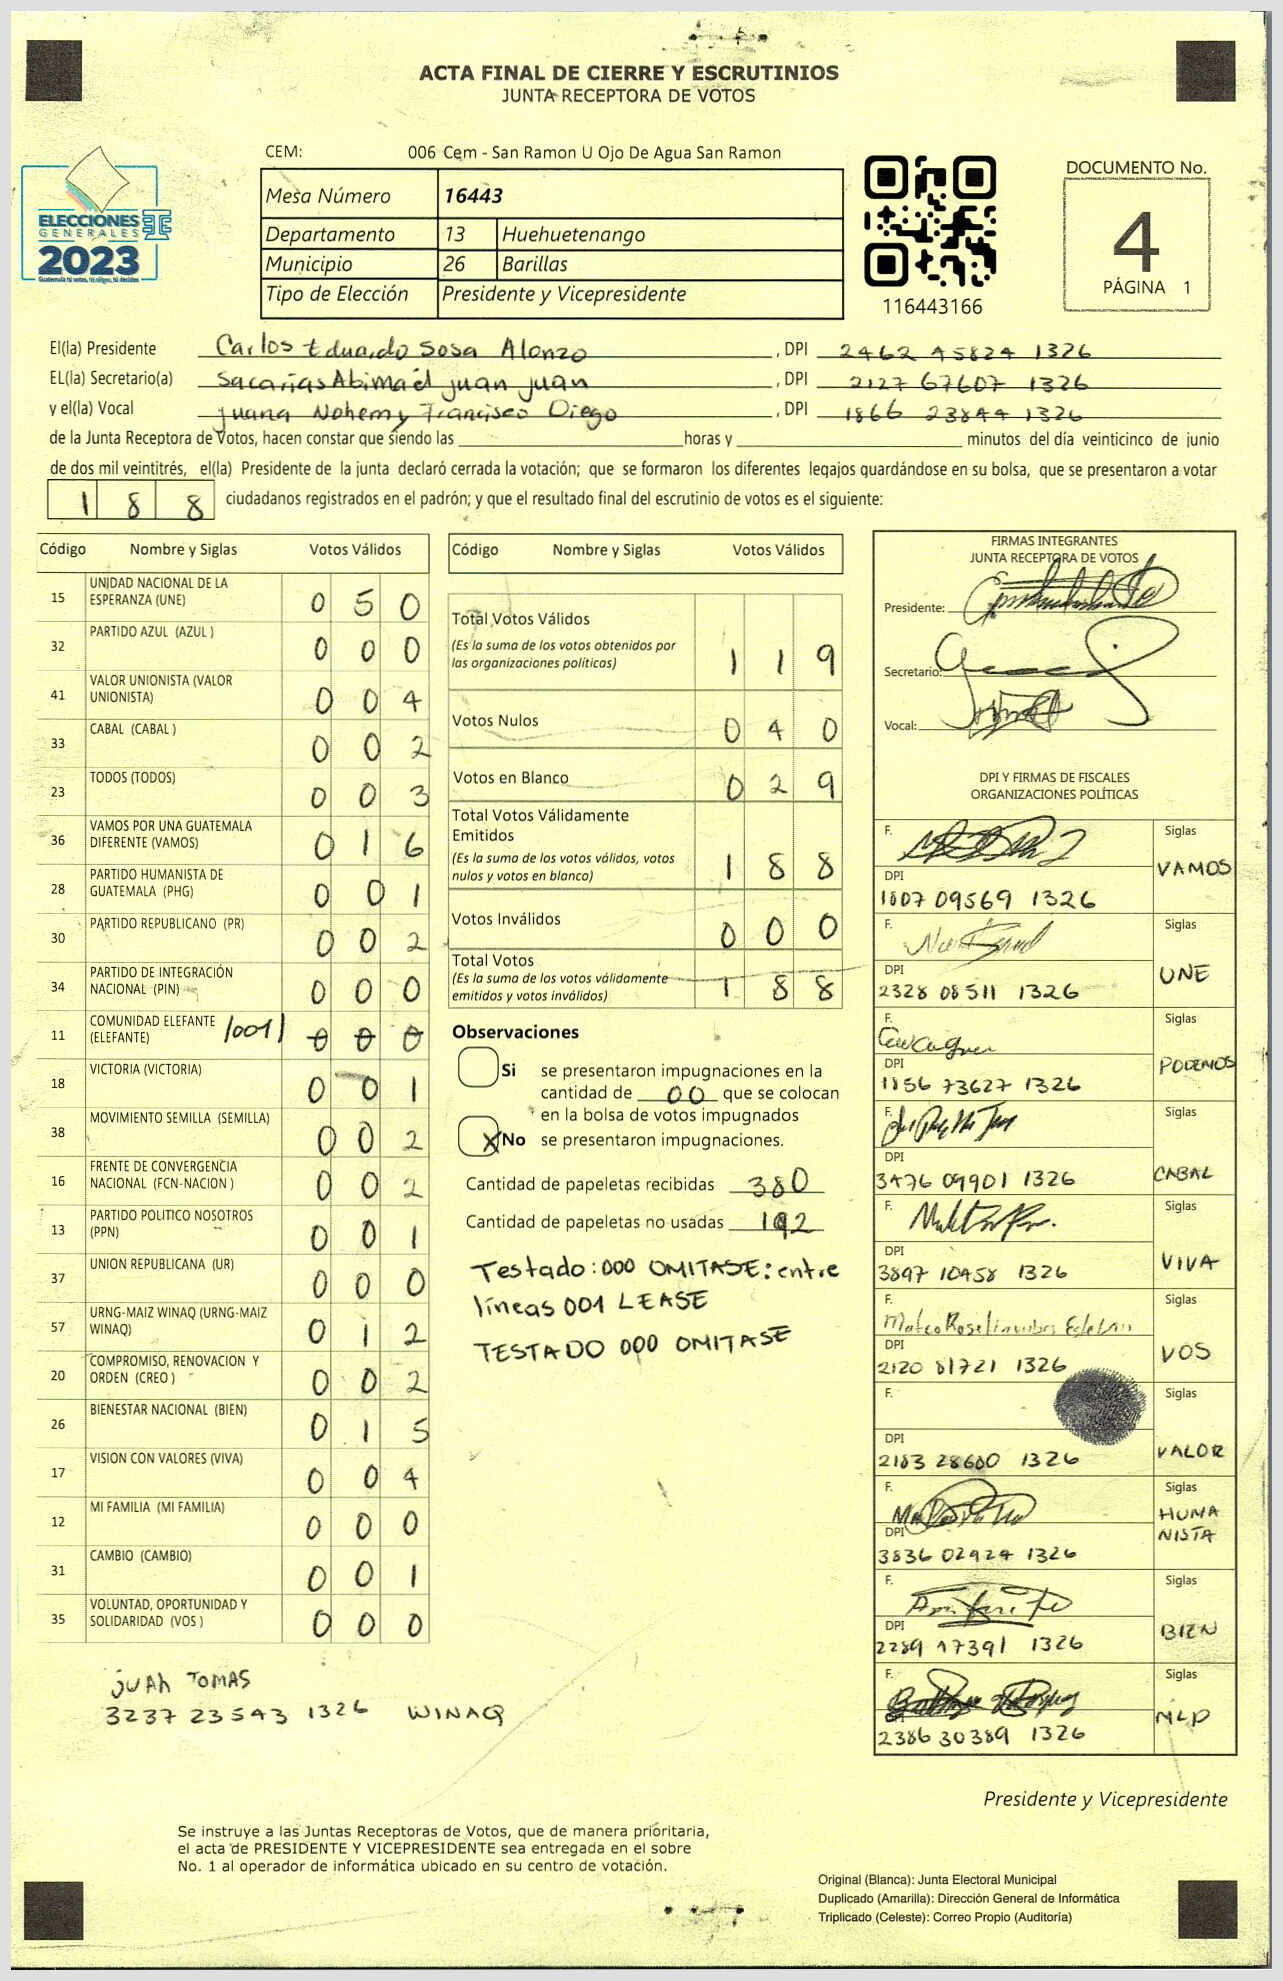 ACTA FINAL DE CIERRE Y ESCRUTINIOS
JUNTA RECEPTORA DE VOTOS
ELECCIONES
GENERALES
2023
Guatemala tú votas, tú eliges, tú decides
CEM: 006 Cem - San Ramon U Ojo De Agua San Ramon
Mesa Número 16443
Departamento 13 Huehuetenango
Municipio 26 Barillas
Tipo de Elección Presidente y Vicepresidente
116443166
DOCUMENTO No.
4
PÁGINA 1
El(la) Presidente Carlos Eduardo Sosa Alonzo , DPI 2462 45824 1326
EL(la) Secretario(a) Sacarías Abimael juan juan , DPI 2127 67607 1326
y el(la) Vocal juana Nohemy Francisco Diego , DPI 1866 23844 1326
de la Junta Receptora de Votos, hacen constar que siendo las horas y minutos del día veinticinco de junio
de dos mil veintitrés, el(la) Presidente de la junta declaró cerrada la votación; que se formaron los diferentes legajos guardándose en su bolsa, que se presentaron a votar
188 ciudadanos registrados en el padrón; y que el resultado final del escrutinio de votos es el siguiente:
Código Nombre y Siglas Votos Válidos
15 UNIDAD NACIONAL DE LA ESPERANZA (UNE) 0 5 0
32 PARTIDO AZUL (AZUL ) 0 0 0
41 VALOR UNIONISTA (VALOR UNIONISTA) 0 0 4
33 CABAL (CABAL ) 0 0 2
23 TODOS (TODOS) 0 0 3
36 VAMOS POR UNA GUATEMALA DIFERENTE (VAMOS) 0 1 6
28 PARTIDO HUMANISTA DE GUATEMALA (PHG) 0 0 1
30 PARTIDO REPUBLICANO (PR) 0 0 2
34 PARTIDO DE INTEGRACIÓN NACIONAL (PIN) 0 0 0
11 COMUNIDAD ELEFANTE (ELEFANTE) /001/ 0 0 0
18 VICTORIA (VICTORIA) 0 0 1
38 MOVIMIENTO SEMILLA (SEMILLA) 0 0 2
16 FRENTE DE CONVERGENCIA NACIONAL (FCN-NACION ) 0 0 2
13 PARTIDO POLITICO NOSOTROS (PPN) 0 0 1
37 UNION REPUBLICANA (UR) 0 0 0
57 URNG-MAIZ WINAQ (URNG-MAIZ WINAQ) 0 1 2
20 COMPROMISO, RENOVACION Y ORDEN (CREO ) 0 0 2
26 BIENESTAR NACIONAL (BIEN) 0 1 5
17 VISION CON VALORES (VIVA) 0 0 4
12 MI FAMILIA (MI FAMILIA) 0 0 0
31 CAMBIO (CAMBIO) 0 0 1
35 VOLUNTAD, OPORTUNIDAD Y SOLIDARIDAD (VOS ) 0 0 0
juan TOMAS
3237 23543 1326 WINAQ
Código Nombre y Siglas Votos Válidos
Total Votos Válidos
(Es la suma de los votos obtenidos por
las organizaciones políticas) 1 1 9
Votos Nulos 0 4 0
Votos en Blanco 0 2 9
Total Votos Válidamente
Emitidos
(Es la suma de los votos válidos, votos
nulos y votos en blanco) 1 8 8
Votos Inválidos 0 0 0
Total Votos
(Es la suma de los votos válidamente
emitidos y votos inválidos) 1 8 8
Observaciones
Si se presentaron impugnaciones en la
cantidad de 00 que se colocan
en la bolsa de votos impugnados
X No se presentaron impugnaciones.
Cantidad de papeletas recibidas 380
Cantidad de papeletas no usadas 192
Testado: 000 OMITASE: entre
líneas 001 LEASE
TESTADO 000 OMITASE
FIRMAS INTEGRANTES
JUNTA RECEPTORA DE VOTOS
Presidente:
Secretario:
Vocal:
DPI Y FIRMAS DE FISCALES
ORGANIZACIONES POLÍTICAS
F. Siglas
DPI VAMOS
1807 09569 1326
F. Siglas
DPI UNE
2328 08511 1326
F. Siglas
DPI PODEMOS
1856 73627 1326
F. Siglas
DPI CABAL
3476 09901 1326
F. Siglas
DPI VIVA
3897 10458 1326
F. Siglas
DPI VOS
2120 81721 1326
F. Siglas
DPI VALOR
2183 28600 1326
F. Siglas
DPI HUMANISTA
3836 02924 1326
F. Siglas
DPI BIEN
2289 17391 1326
F. Siglas
MLP
2386 30389 1326
Presidente y Vicepresidente
Se instruye a las Juntas Receptoras de Votos, que de manera prioritaria,
el acta de PRESIDENTE Y VICEPRESIDENTE sea entregada en el sobre
No. 1 al operador de informática ubicado en su centro de votación.
Original (Blanca): Junta Electoral Municipal
Duplicado (Amarilla): Dirección General de Informática
Triplicado (Celeste): Correo Propio (Auditoría)